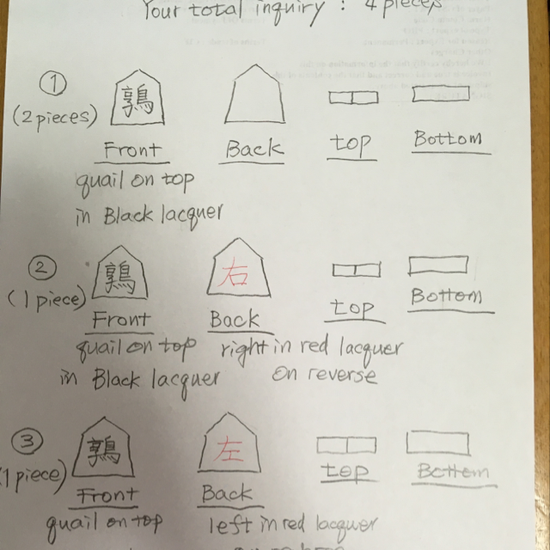 Your total inquiry : 4 pieces
①
(2 pieces)
鶉
Front
Back
top
Bottom
quail on top
in Black lacquer
②
(1 piece)
鶉
右
Front
Back
top
Bottom
quail on top
right in red lacquer
in Black lacquer
on reverse
③
1 piece)
鶉
左
Front
Back
top
Bottom
quail on top
left in red lacquer